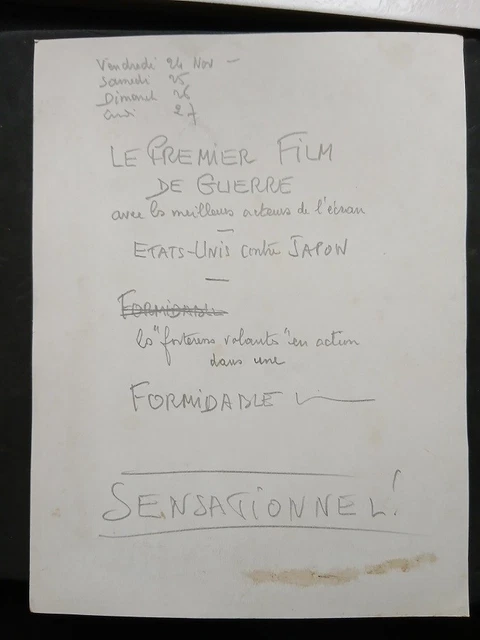 Vendredi 24 Nov –
Samedi 25
Dimanch 26
Lundi 27
LE PREMIER FILM
DE GUERRE
avec les meilleurs acteurs de l'écran
—
ETATS-UNIS contre JAPON
—
FORMIDABLE
les "forteress volants" en action
dans une
FORMIDABLE
SENSATIONNEL!